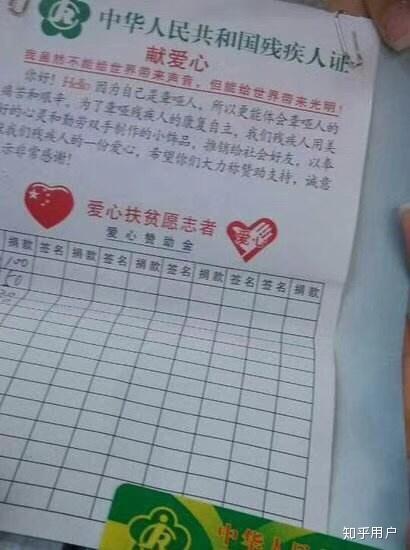 中华人民共和国残疾人证
献爱心
我虽然不能给世界带来声音，但能给世界带来光明！
你好！Hello 因为自己是聋哑人，所以更能体会聋哑人的
痛苦和艰辛，为了聋哑残疾人的康复自立，我们残疾人用美
好的心灵和勤劳双手制作的小饰品，推销给社会好友，以奉
我们残疾人的一份爱心，希望你们大力称赞助支持，诚意
示非常感谢！
爱心扶贫愿志者
爱心
爱心赞助金
捐款 签名 捐款 签名 捐款 签名 捐款 签名 捐款 签名 捐款
100
50
中华人民
知乎用户